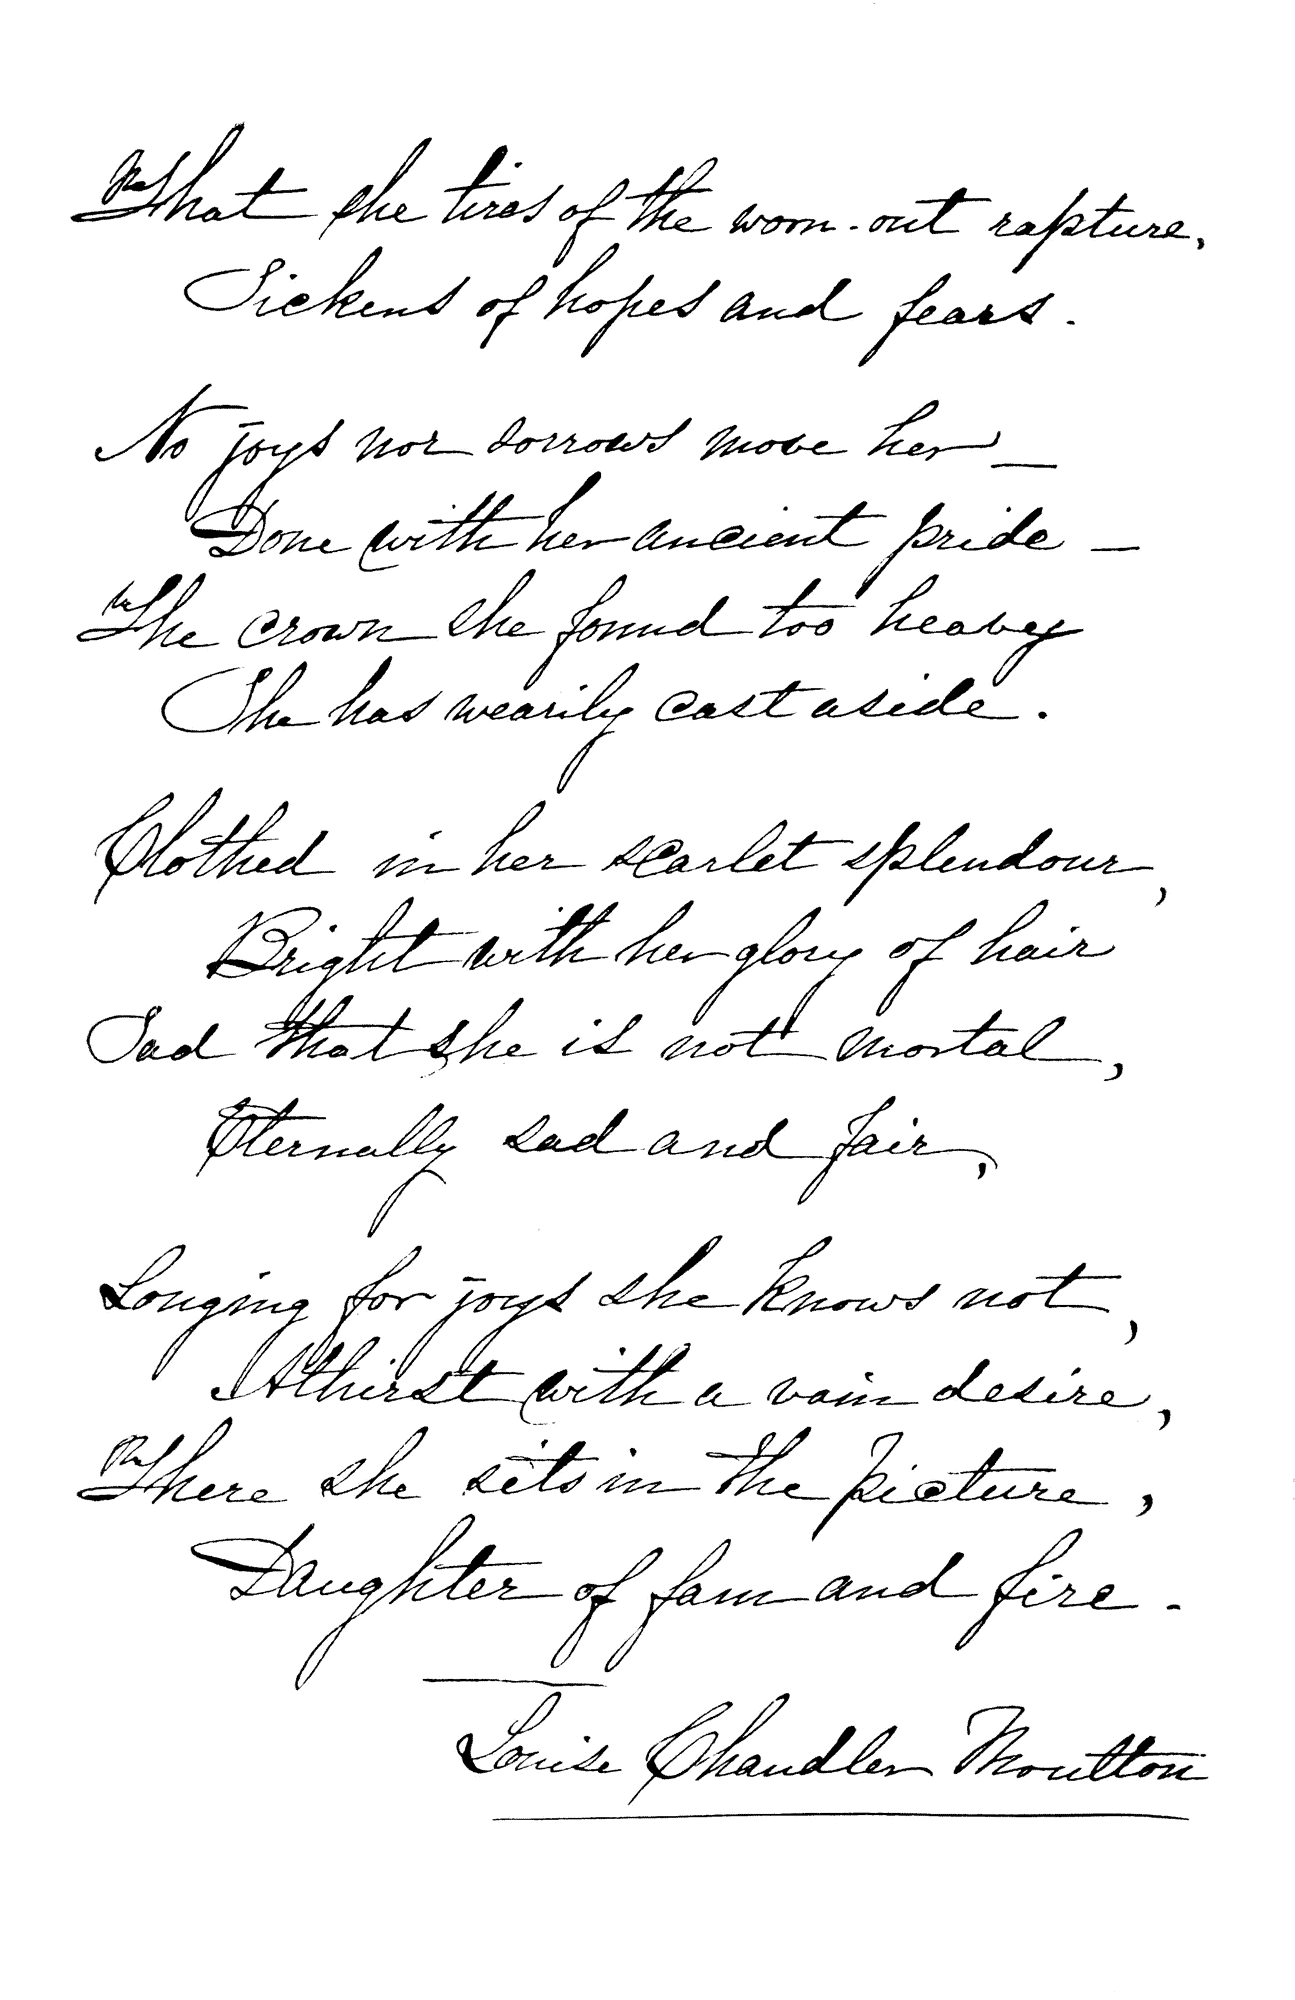 That she tires of the worn-out rapture,
Sickens of hopes and fears.
No joys nor sorrows move her —
Done with her ancient pride —
The crown she found too heavy
She has wearily cast aside.
Clothed in her scarlet splendour,
Bright with her glory of hair
Sad that she is not mortal,
Eternally sad and fair,
Longing for joys she knows not,
Athirst with a vain desire,
There she sits in the picture,
Daughter of foam and fire -
Louise Chandler Moulton